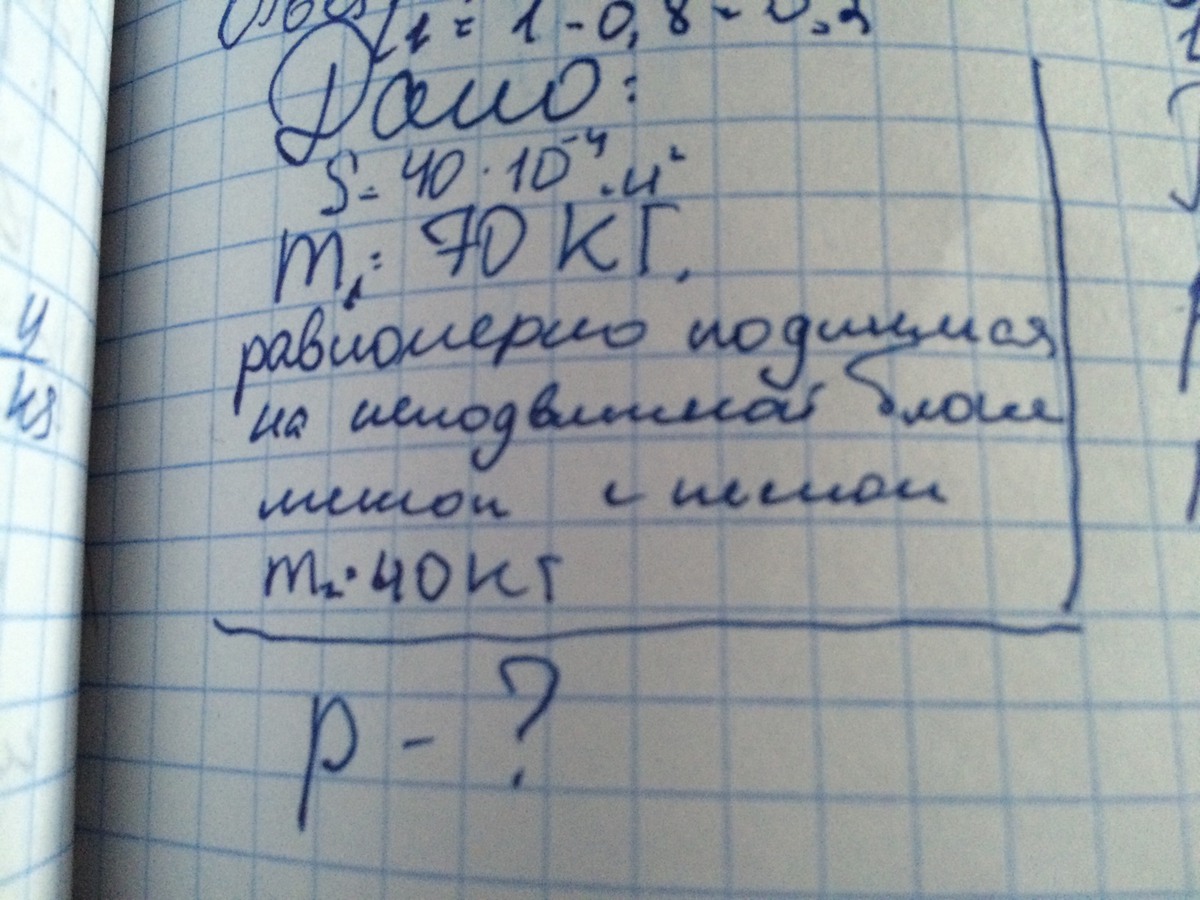 1 = 1 - 0,8 = 0,2
Дано:
S = 40 · 10⁻⁴ м²
m₁ = 70 кг,
равномерно
на неподвижной блоке
мешок с песком
m₂ = 40 кг
p - ?